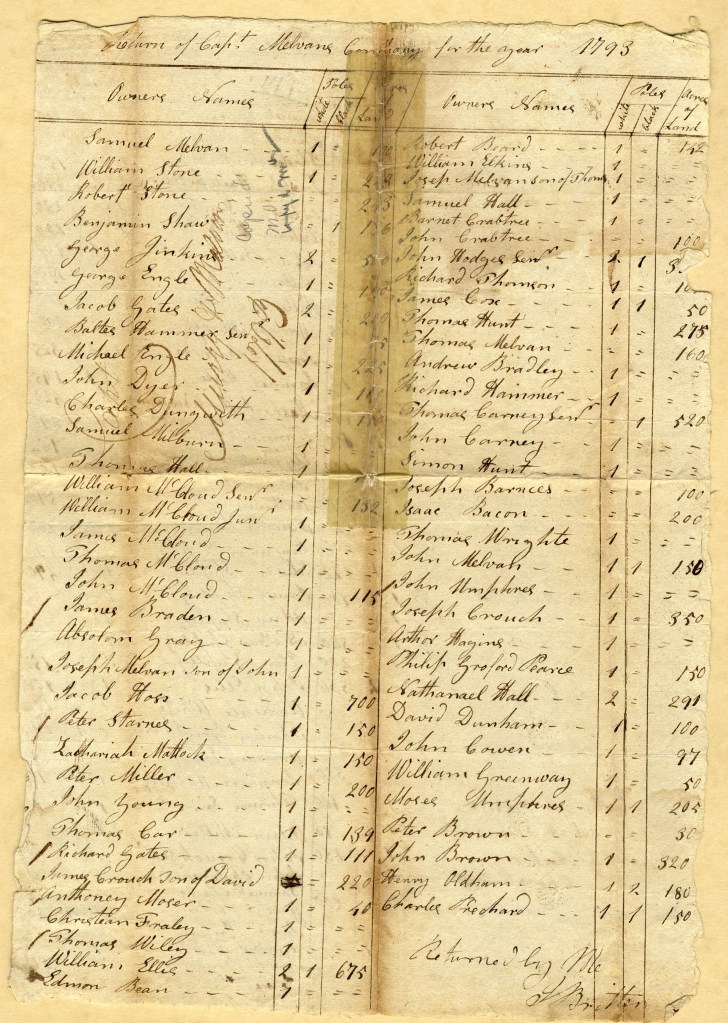 Return of Capt. Melvans Company for the year 1793
Owners Names
Poles
white
black
Land
Samuel Melvan 1 =
William Stone 1 =
Robert Stone
Benjamin Shaw 1
George Jinkins 2 =
George Engle 1 =
Jacob Gates 2 =
Balter Hammer Senr
Michael Engle 1 =
John Dyer 1 =
Charles Dungwith 1
Samuel Milburn 1
Thomas Hall 1 =
William McCloud Senr
William McCloud Junr 1 = 132
James McCloud 1 =
Thomas McCloud 1 =
John McCloud 1 = 115
James Braden 1 =
Absolom Gray 1 =
Joseph Melvan Son of John 1 =
Jacob Hoss 1 = 700
Peter Starnes 1 = 150
Zachariah Matlock 1 = 150
Peter Miller 1 = 200
John Young 1 =
Thomas Car 1 = 139
Richard Gates 1 = 111
James Crouch Son of David = 220
Anthoney Moser 1 = 40
Christian Fraley 1 =
Thomas Wiley 1 =
William Ellis 2 1 675
Edmon Bean 1 = = =
Owners Names
Poles
white
black
Acres
of
Land
Robert Beard 1
William Elkins 1 =
Joseph Melvan son of Thoms 1 = = =
Samuel Hall 1 = = =
Barnet Crabtree 1 =
John Crabtree 100
John Hodges Senr 2 1
Richard Thomson 1 =
James Cox 1 1 50
Thomas Hunt 1 = 275
Thomas Melvan = 160
Andrew Bradley 1 = = =
Richard Hammer 1 = = =
Thomas Carney Senr 1 520
John Carney 1 = = =
Simon Hunt 1 = = =
Joseph Barnees 1 = 100
Isaac Bacon 1 = 200
Thomas Wrighte 1 = = =
John Melvan 1 1 150
John Umphres 1 = = =
Joseph Crouch 1 = 350
Arthor Hagins 1 =
Philip Groford Pearce 1 = 150
Nathanael Hall 2 = 291
David Dunham 1 = 100
John Cowen 1 = 97
William Greenway 1 = 50
Moses Umphres 1 1 205
Peter Brown 50
John Brown 1 = 320
Henry Oldham 1 2 180
Charles Prechard 1 1 150
Returned by Me